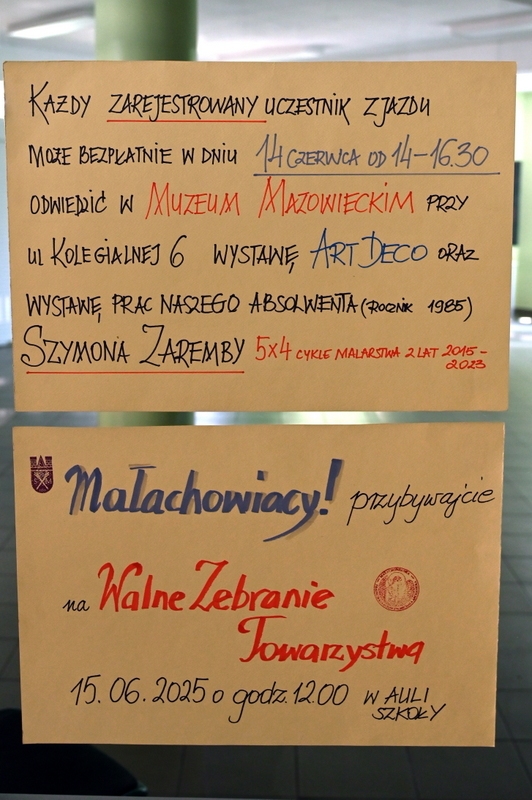 KAŻDY ZAREJESTROWANY UCZESTNIK ZJAZDU
MOŻE BEZPŁATNIE W DNIU 14 CZERWCA OD 14-16.30
ODWIEDZIĆ W MUZEUM MAZOWIECKIM PRZY
ul KOLEGIALNEJ 6 WYSTAWĘ ART DECO ORAZ
WYSTAWĘ PRAC NASZEGO ABSOLWENTA (ROCZNIK 1985)
SZYMONA ZAREMBY 5x4 CYKLE MALARSTWA Z LAT 2015-
2023
Małachowiacy! przybywajcie
na Walne Zebranie
Towarzystwa
15.06.2025 o godz. 12.00 W AULI
SZKOŁY